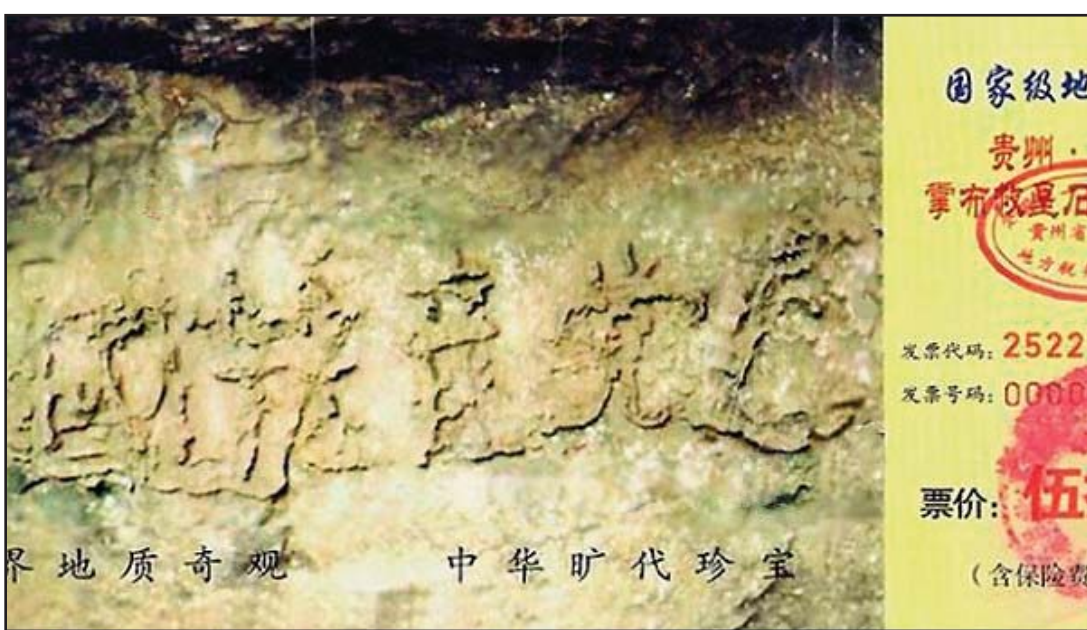 國共产党亡
界地质奇观 中华旷代珍宝
国家级地
贵州·
掌布救星石
贵州省
地方税
发票代码：2522
发票号码：000
票价：伍
（含保险费